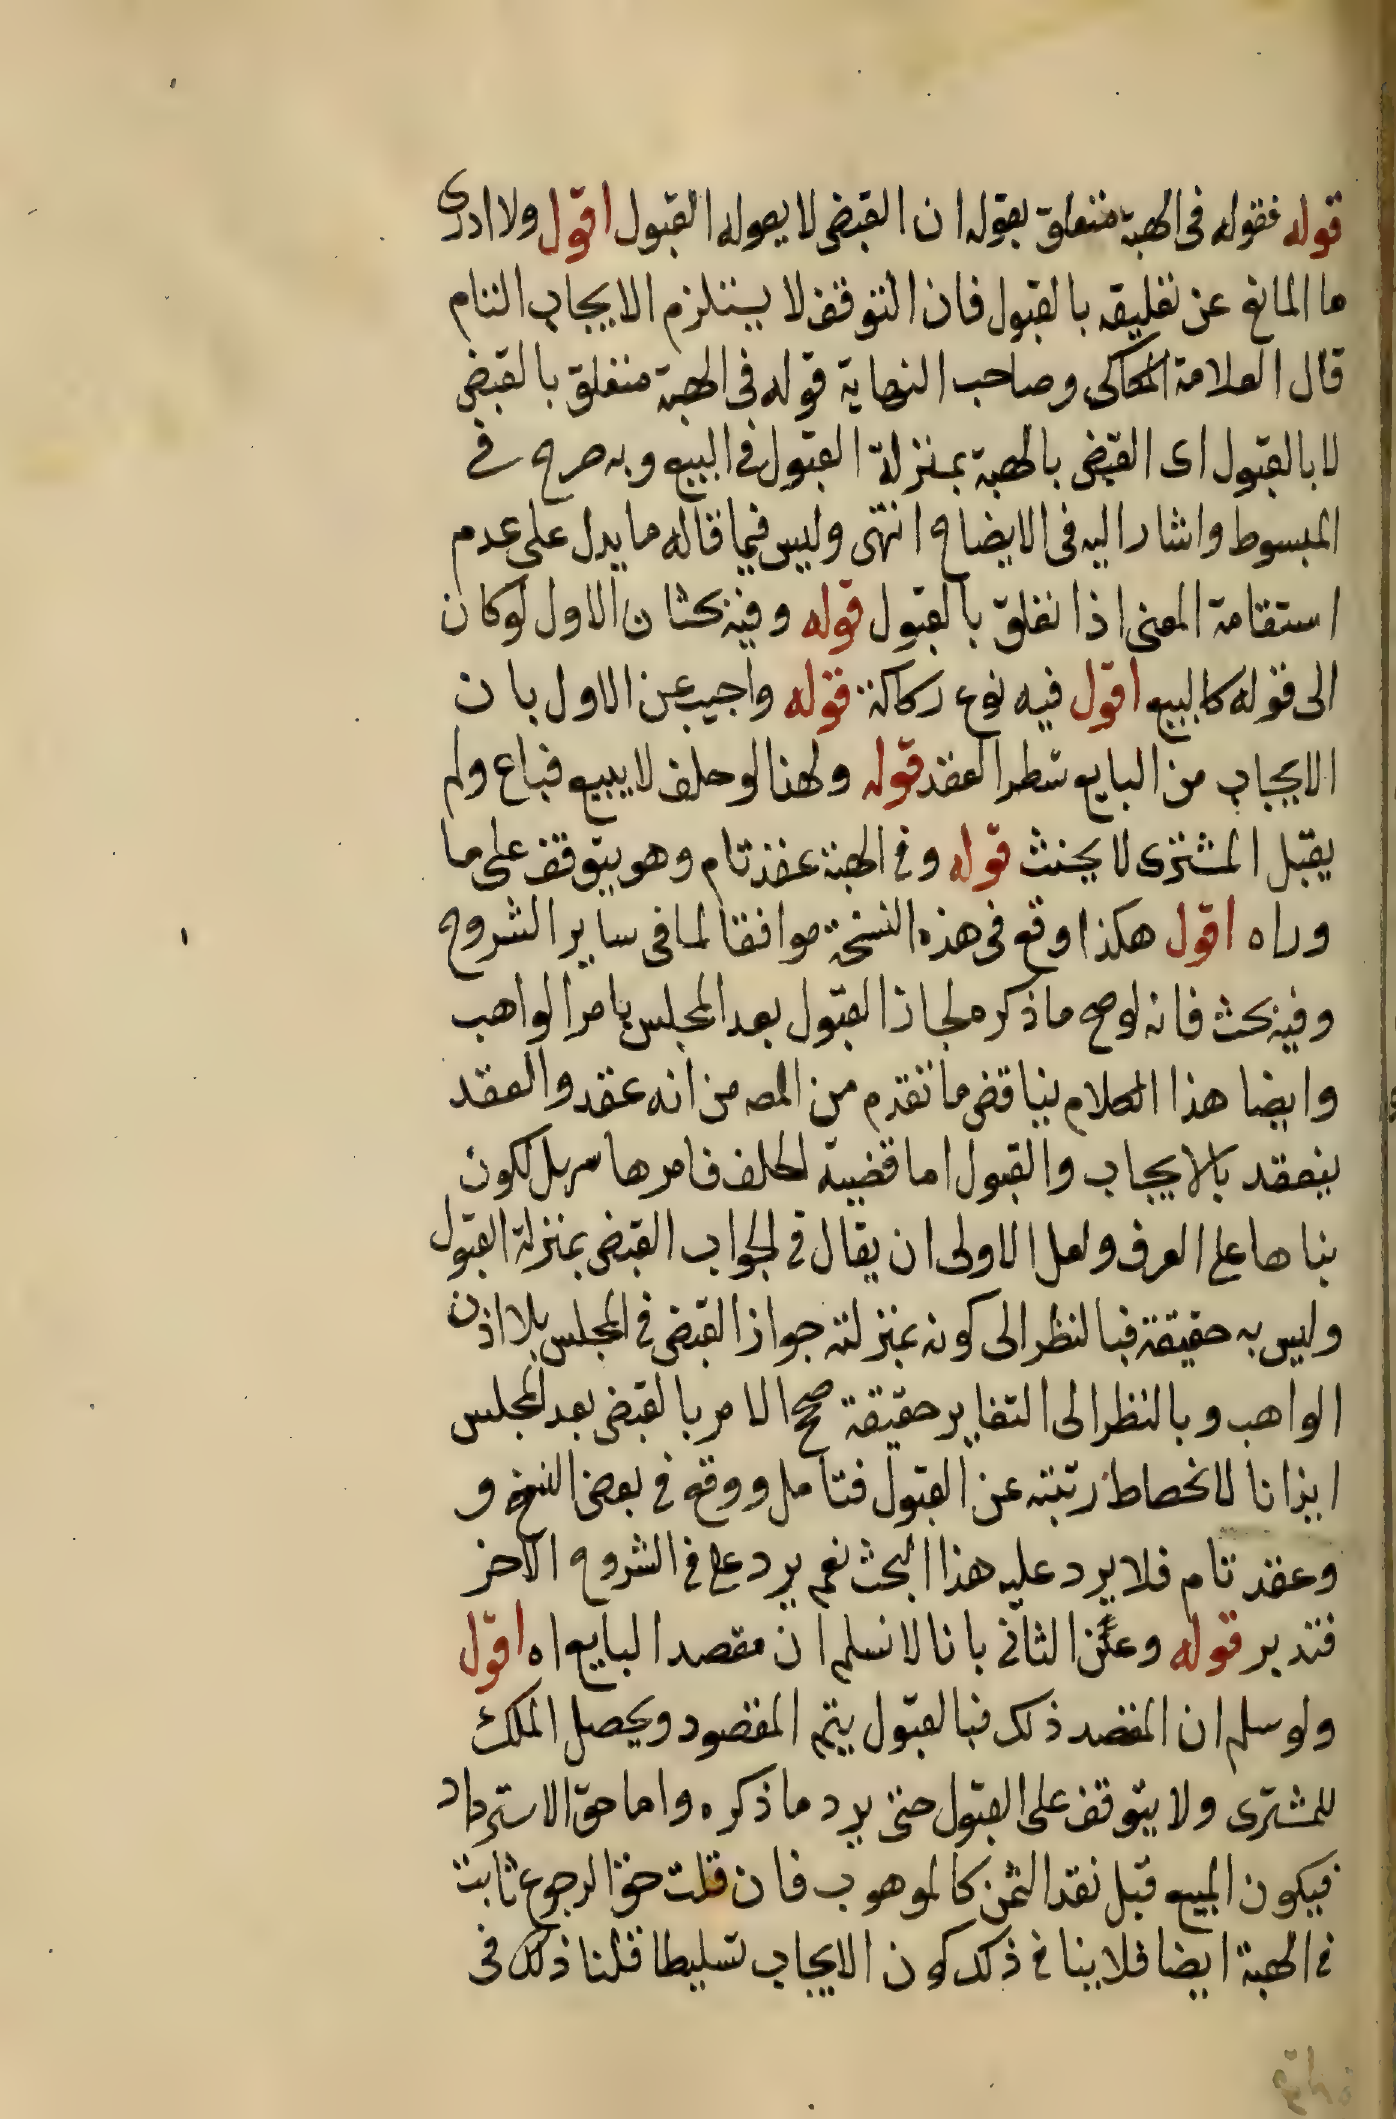 قوله فقوله فى الهبة متعلق بقوله ان القبض لا بقوله القبول اقول ولا ادرى
ما المانع عن تعليقه بالقبول فان التوقف لا يستلزم الايجاب التام
قال العلامة الكاكى وصاحب النهاية قوله فى الهبة متعلق بالقبض
لا بالقبول اى القبض بالهبة بمنزلة القبول فى البيع وبه صرح فى
المبسوط واشار اليه فى الايضاح انتهى وليس فيما قاله ما يدل على عدم
استقامة المعنى اذا تعلق بالقبول قوله وفيه بحثان الاول لو كان
الى قوله كالبيع اقول فيه نوع ركاكة قوله واجيب عن الاول بان
الايجاب من البايع شطر العقد قوله ولهذا لو حلف لا يبيع فباع ولم
يقبل المشترى لا يحنث قوله وفى الهبة عقد تام وهو يتوقف على ما
وراه اقول هكذا وقع فى هذه النسخة موافقا لما فى ساير الشروح
وفيه بحث فانه لو صح ما ذكره لجاز القبول بعد المجلس بامر الواهب
وايضا هذا الكلام يناقض ما تقدم من المصه من انه عقد والعقد
ينعقد بالايجاب والقبول اما قضية الحلف فامرها سهل لكون
بناها على العرف ولعل الاولى ان يقال فى الجواب القبض بمنزلة القبول
وليس به حقيقة فبالنظر الى كونه بمنزلته جواز القبض فى المجلس بلا اذن
الواهب وبالنظر الى التغاير حقيقة صح الامر بالقبض بعد المجلس
ايذانا لانحطاط رتبته عن القبول فتامل ووقع فى بعض النسخ و
وعقد تام فلا يرد عليه هذا البحث نعم يرد على فى الشروح الاخر
فتدبر قوله وعن الثانى بانا لا نسلم ان مقصد البايع اه اقول
ولو سلم ان المقصد ذلك فبالقبول يتم المقصود ويحصل الملك
للمشترى ولا يتوقف على القبول حتى يرد ما ذكره واما حق الاسترداد
فيكون المبيع قبل نقد الثمن كالموهوب فان قلت حق الرجوع ثابت
فى الهبة ايضا فلا ينافى ذلك كون الايجاب تسليطا قلنا ذلك فى